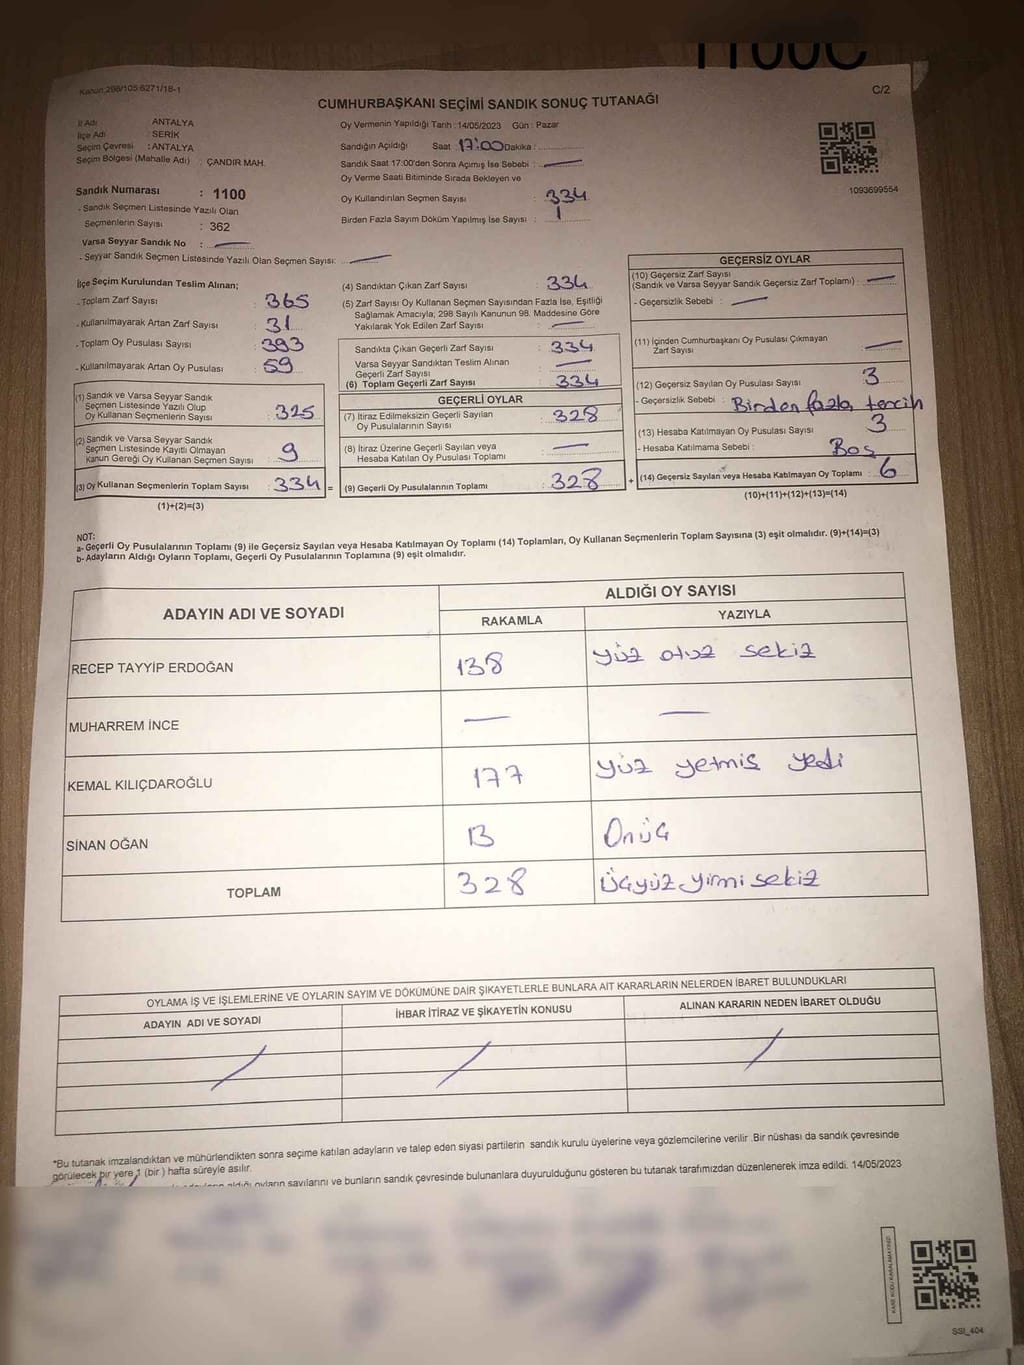 1100C
Kanun:298/105:6271/18-1
C/2
CUMHURBAŞKANI SEÇİMİ SANDIK SONUÇ TUTANAĞI
İl Adı : ANTALYA
İlçe Adı : SERİK
Seçim Çevresi : ANTALYA
Seçim Bölgesi (Mahalle Adı) : ÇANDIR MAH.
Sandık Numarası : 1100
- Sandık Seçmen Listesinde Yazılı Olan
Seçmenlerin Sayısı : 362
Varsa Seyyar Sandık No : —
- Seyyar Sandık Seçmen Listesinde Yazılı Olan Seçmen Sayısı: —
Oy Vermenin Yapıldığı Tarih : 14/05/2023 Gün : Pazar
Sandığın Açıldığı Saat 17:00 Dakika :
Sandık Saat 17:00'den Sonra Açımış İse Sebebi : —
Oy Verme Saati Bitiminde Sırada Bekleyen ve
Oy Kullandırılan Seçmen Sayısı : 334
Birden Fazla Sayım Döküm Yapılmış İse Sayısı : 1
1093699554
İlçe Seçim Kurulundan Teslim Alınan;
- Toplam Zarf Sayısı : 365
- Kullanılmayarak Artan Zarf Sayısı : 31
- Toplam Oy Pusulası Sayısı : 393
- Kullanılmayarak Artan Oy Pusulası : 59
(1) Sandık ve Varsa Seyyar Sandık
Seçmen Listesinde Yazılı Olup
Oy Kullanan Seçmenlerin Sayısı : 325
(2) Sandık ve Varsa Seyyar Sandık
Seçmen Listesinde Kayıtlı Olmayan
Kanun Gereği Oy Kullanan Seçmen Sayısı : 9
(3) Oy Kullanan Seçmenlerin Toplam Sayısı : 334 =
(1)+(2)=(3)
(4) Sandıktan Çıkan Zarf Sayısı : 334
(5) Zarf Sayısı Oy Kullanan Seçmen Sayısından Fazla İse, Eşitliği
Sağlamak Amacıyla; 298 Sayılı Kanunun 98. Maddesine Göre
Yakılarak Yok Edilen Zarf Sayısı : —
Sandıkta Çıkan Geçerli Zarf Sayısı : 334
Varsa Seyyar Sandıktan Teslim Alınan
Geçerli Zarf Sayısı : —
(6) Toplam Geçerli Zarf Sayısı : 334
GEÇERLİ OYLAR
(7) İtiraz Edilmeksizin Geçerli Sayılan
Oy Pusulasının Sayısı : 328
(8) İtiraz Üzerine Geçerli Sayılan veya
Hesaba Katılan Oy Pusulası Toplamı : —
(9) Geçerli Oy Pusulalarının Toplamı : 328 +
GEÇERSİZ OYLAR
(10) Geçersiz Zarf Sayısı
(Sandık ve Varsa Seyyar Sandık Geçersiz Zarf Toplamı) : —
- Geçersizlik Sebebi : —
(11) İçinden Cumhurbaşkanı Oy Pusulası Çıkmayan
Zarf Sayısı : —
(12) Geçersiz Sayılan Oy Pusulası Sayısı : 3
- Geçersizlik Sebebi : Birden fazla tercih
(13) Hesaba Katılmayan Oy Pusulası Sayısı : 3
- Hesaba Katılmama Sebebi : Boş
(14) Geçersiz Sayılan veya Hesaba Katılmayan Oy Toplamı : 6
(10)+(11)+(12)+(13)=(14)
NOT:
a- Geçerli Oy Pusulalarının Toplamı (9) ile Geçersiz Sayılan veya Hesaba Katılmayan Oy Toplamı (14) Toplamları, Oy Kullanan Seçmenlerin Toplam Sayısına (3) eşit olmalıdır. (9)+(14)=(3)
b- Adayların Aldığı Oyların Toplamı, Geçerli Oy Pusulalarının Toplamına (9) eşit olmalıdır.
ADAYIN ADI VE SOYADI
ALDIĞI OY SAYISI
RAKAMLA YAZIYLA
RECEP TAYYİP ERDOĞAN 138 yüz otuz sekiz
MUHARREM İNCE — —
KEMAL KILIÇDAROĞLU 177 yüz yetmiş yedi
SİNAN OĞAN 13 Onüç
TOPLAM 328 üçyüz yirmi sekiz
OYLAMA İŞ VE İŞLEMLERİNE VE OYLARIN SAYIM VE DÖKÜMÜNE DAİR ŞİKAYETLERLE BUNLARA AİT KARARLARIN NELERDEN İBARET BULUNDUKLARI
ADAYIN ADI VE SOYADI İHBAR İTİRAZ VE ŞİKAYETİN KONUSU ALINAN KARARIN NEDEN İBARET OLDUĞU
*Bu tutanak imzalandıktan ve mühürlendikten sonra seçime katılan adayların ve talep eden siyasi partilerin sandık kurulu üyelerine veya gözlemcilerine verilir .Bir nüshası da sandık çevresinde
görülecek bir yere 1 (bir ) hafta süreyle asılır.
aldığı oyların sayılarını ve bunların sandık çevresinde bulunanlara duyurulduğunu gösteren bu tutanak tarafımızdan düzenlenerek imza edildi. 14/05/2023
SSI_404